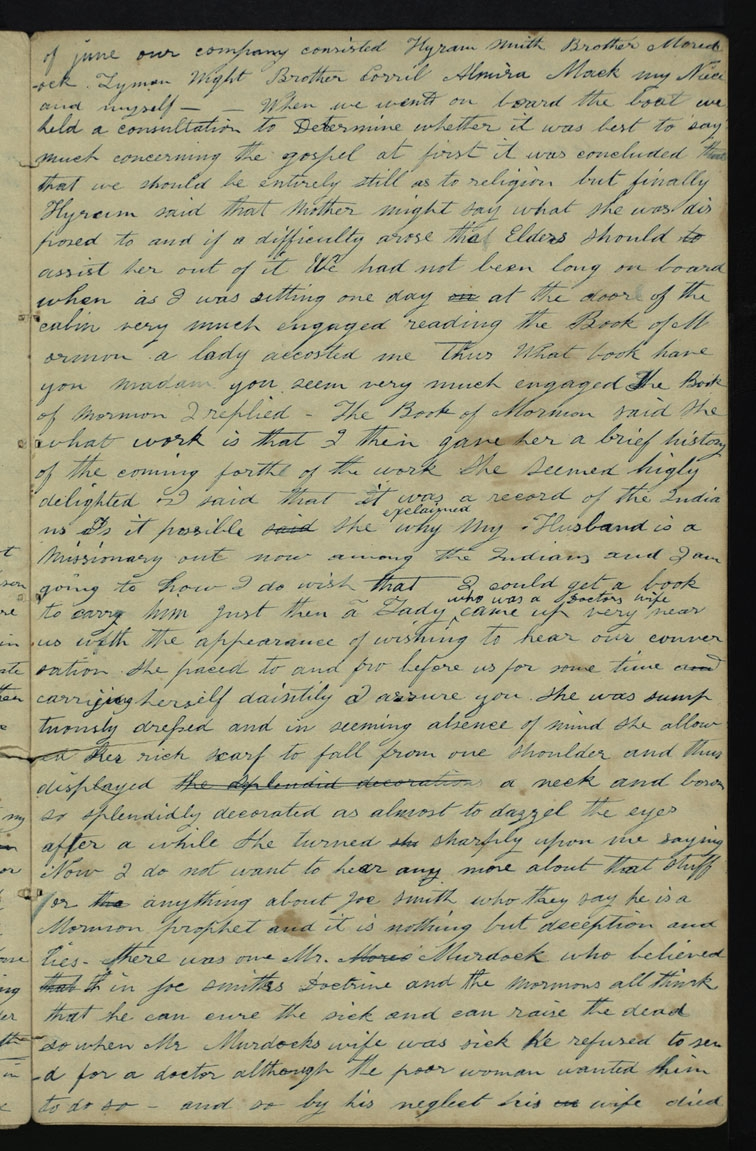 of june our company consisted Hyram Smith Brother Mored
ock. Lyman Wight Brother Corril Almira Mack my Niece
and myself — — When we went on board the boat we
held a consultation to Determine whether it was best to say
much concerning the gospel at first it was concluded
that we should be entirely still as to religion but finally
Hyrum said that Mother might say what she was dis
posed to and if a difficulty arose the Elders should to
assist her out of it We had not been long on board
when as I was sitting one day on at the door of the
cabin very much engaged reading the Book of M
ormon a lady accosted me Thus What book have
you madam you seem very much engaged The Book
of Mormon I replied – The Book of Mormon said she
what work is that I then gave her a brief history
of the coming forth of the work She seemed higly
delighted I said that it was a record of the India
ns Is it possible said she exclaimed why My Husband is a
Missionary out now among the Indians and I am
going to how I do wish that I could get a book
to carry him just then a Lady who was a Doctors wife came up very near
us with the appearance of wishing to hear our conver
sation she paced to and fro before us for some time and
carrying herself daintily I assure you she was sump
tuously dressed and in seeming absence of mind she allow
ed her rich scarf to fall from one shoulder and thus
displayed the splendid decorations a neck and bosom
so splendidly decorated as almost to dazzel the eyes
after a while she turned she sharply upon me saying
Now I do not want to hear any more about that stuff
or the anything about Joe Smith who they say he is a
Mormon prophet and it is nothing but deception and
lies– there was one Mr. Mores Murdock who believed
that in Joe smiths Doctrine and the mormons all think
that he can cure the sick and can raise the dead
so when Mr Murdocks wife was sick He refused to sen
d for a doctor although the poor woman wanted him
to do so – and so by his neglect his wife died